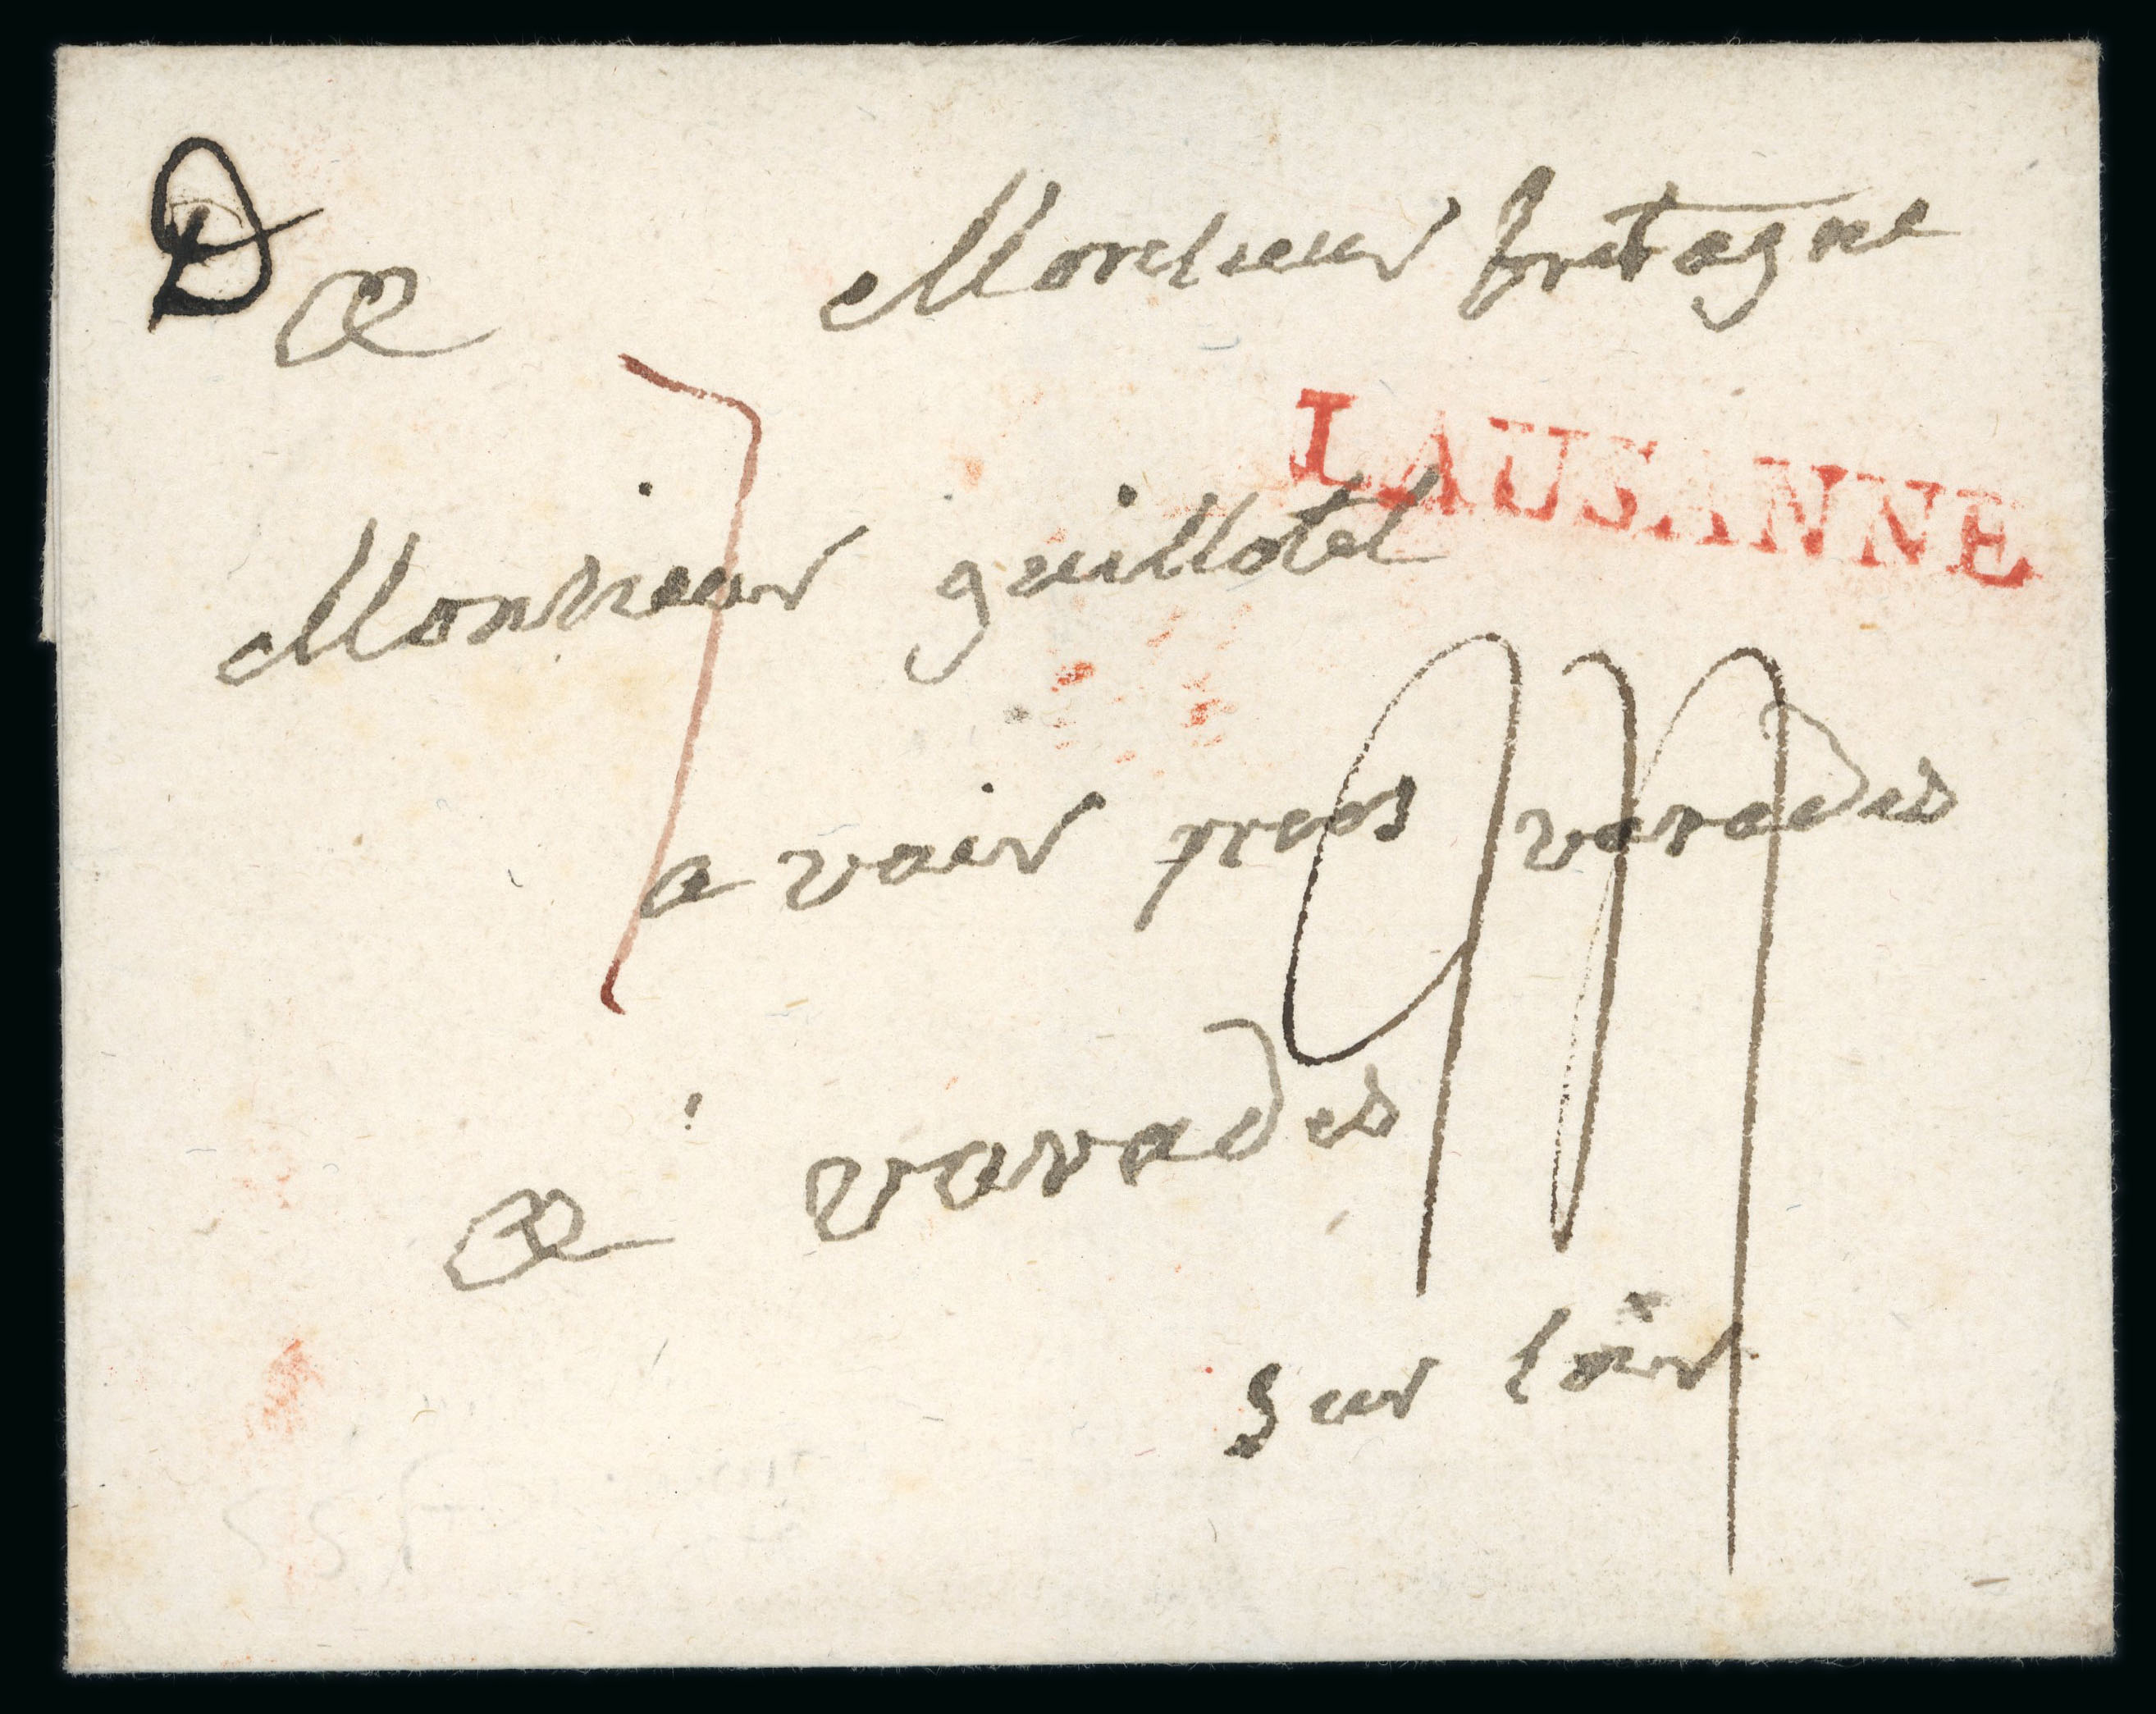 D
a Monsieur bretagne
LAUSANNE
7
Monsieur guillotel
a vair prees varades
a varades
sur loir